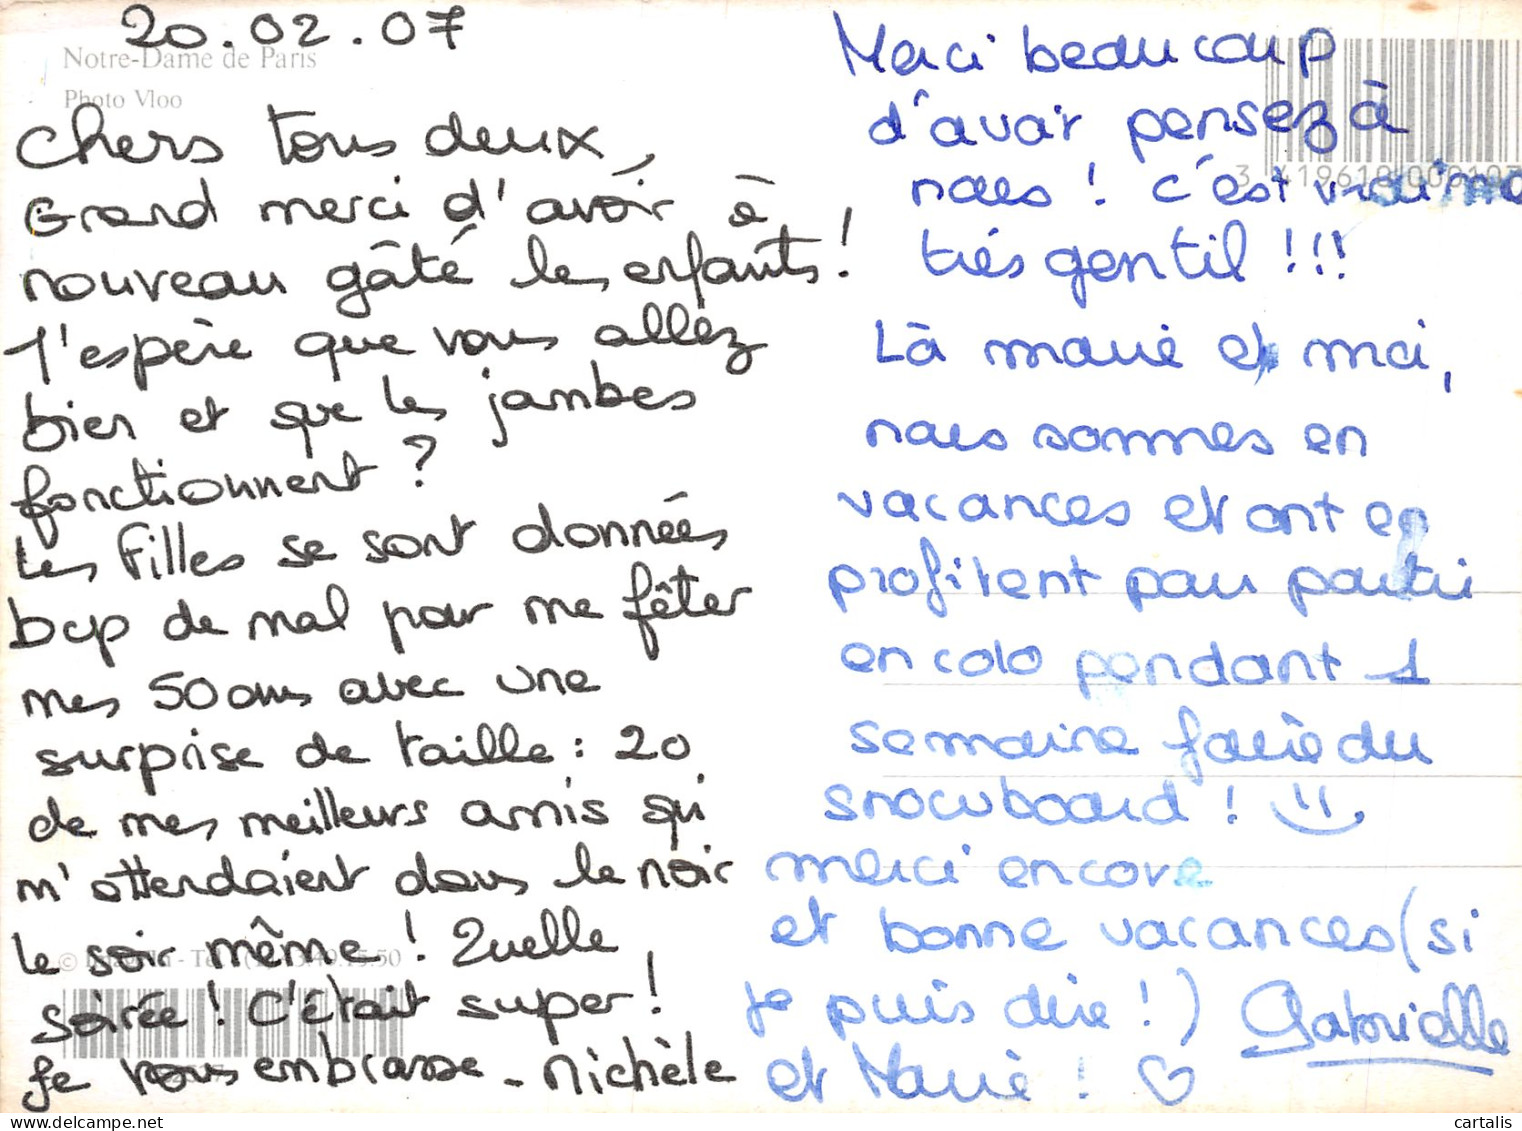 20.02.07
Notre-Dame de Paris
Photo Vloo
Chers tous deux,
Grand merci d'avoir à
nouveau gâté les enfants !
J'espère que vous allez
bien et que les jambes
fonctionnent ?
Les Filles se sont données
bcp de mal pour me fêter
mes 50 ans avec une
surprise de taille : 20
de mes meilleurs amis qui
m'attendaient dans le noir
le soir même ! Quelle
soirée ! C'était super !
Je vous embrasse - Michèle
Merci beaucoup
d'avoir pensez à
nous ! c'est vraiment
très gentil !!!
Là marie et moi,
nous sommes en
vacances et ont en
profitent pour partir
en colo pendant 1
semaine faire du
snowboard !
merci encore
et bonne vacances (si
je puis dire !) Gabrielle
et Marie ! ♡
cartalis